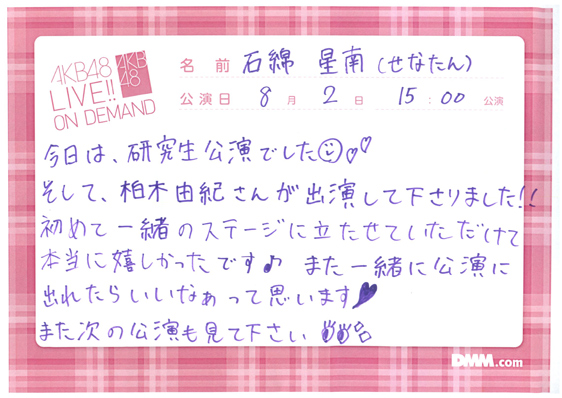 AKB48
LIVE!!
ON DEMAND
AKB
48
名前 石綿 星南(せなたん)
公演日 8月2日 15:00 公演
今日は、研究生公演でした☺♡♡
そして、柏木由紀さんが出演して下さりました!!
初めて一緒のステージに立たせていただけて
本当に嬉しかったです♪ また一緒に公演に
出れたらいいなぁって思います♥
また次の公演も見て下さい
DMM.com